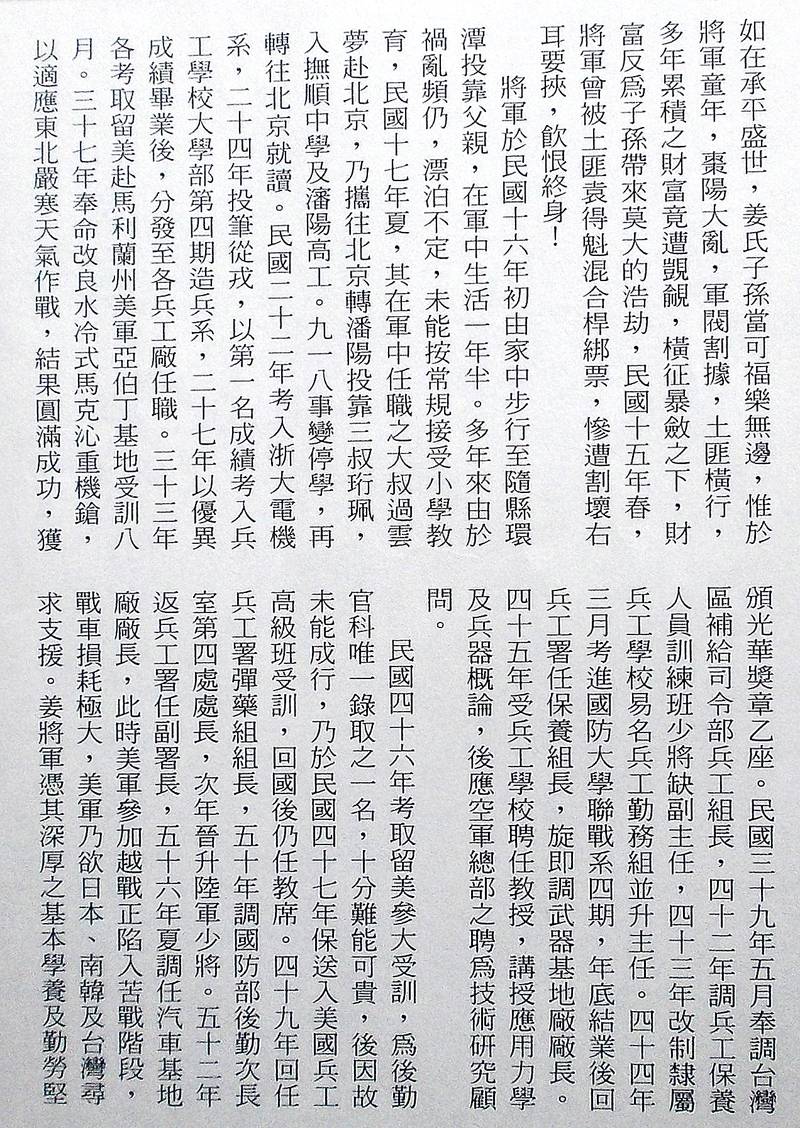 如在承平盛世，姜氏子孫當可福樂無邊，惟於
將軍童年，棗陽大亂，軍閥割據，土匪橫行，
多年累積之財富竟遭覬覦，橫征暴斂之下，財
富反爲子孫帶來莫大的浩劫，民國十五年春，
將軍曾被土匪袁得魁混合桿綁票，慘遭割壞右
耳要挾，飲恨終身！
將軍於民國十六年初由家中步行至隨縣環
潭投靠父親，在軍中生活一年半。多年來由於
禍亂頻仍，漂泊不定，未能按常規接受小學教
育，民國十七年夏，其在軍中任職之大叔過雲
夢赴北京，乃攜往北京轉潘陽投靠三叔珩珮，
入撫順中學及瀋陽高工。九一八事變停學，再
轉往北京就讀。民國二十二年考入浙大電機
系，二十四年投筆從戎，以第一名成績考入兵
工學校大學部第四期造兵系，二十七年以優異
成績畢業後，分發至各兵工廠任職。三十三年
各考取留美赴馬利蘭州美軍亞伯丁基地受訓八
月。三十七年奉命改良水冷式馬克沁重機鎗，
以適應東北嚴寒天氣作戰，結果圓滿成功，獲
頒光華獎章乙座。民國三十九年五月奉調台灣
區補給司令部兵工組長，四十二年調兵工保養
人員訓練班少將缺副主任，四十三年改制隸屬
兵工學校易名兵工勤務組並升主任。四十四年
三月考進國防大學聯戰系四期，年底結業後回
兵工署任保養組長，旋即調武器基地廠廠長。
四十五年受兵工學校聘任教授，講授應用力學
及兵器概論，後應空軍總部之聘爲技術研究顧
問。
民國四十六年考取留美參大受訓，爲後勤
官科唯一錄取之一名，十分難能可貴，後因故
未能成行，乃於民國四十七年保送入美國兵工
高級班受訓，回國後仍任教席。四十九年回任
兵工署彈藥組組長，五十年調國防部後勤次長
室第四處處長，次年晉升陸軍少將。五十二年
返兵工署任副署長，五十六年夏調任汽車基地
廠廠長，此時美軍參加越戰正陷入苦戰階段，
戰車損耗極大，美軍乃欲日本、南韓及台灣尋
求支援。姜將軍憑其深厚之基本學養及勤勞堅